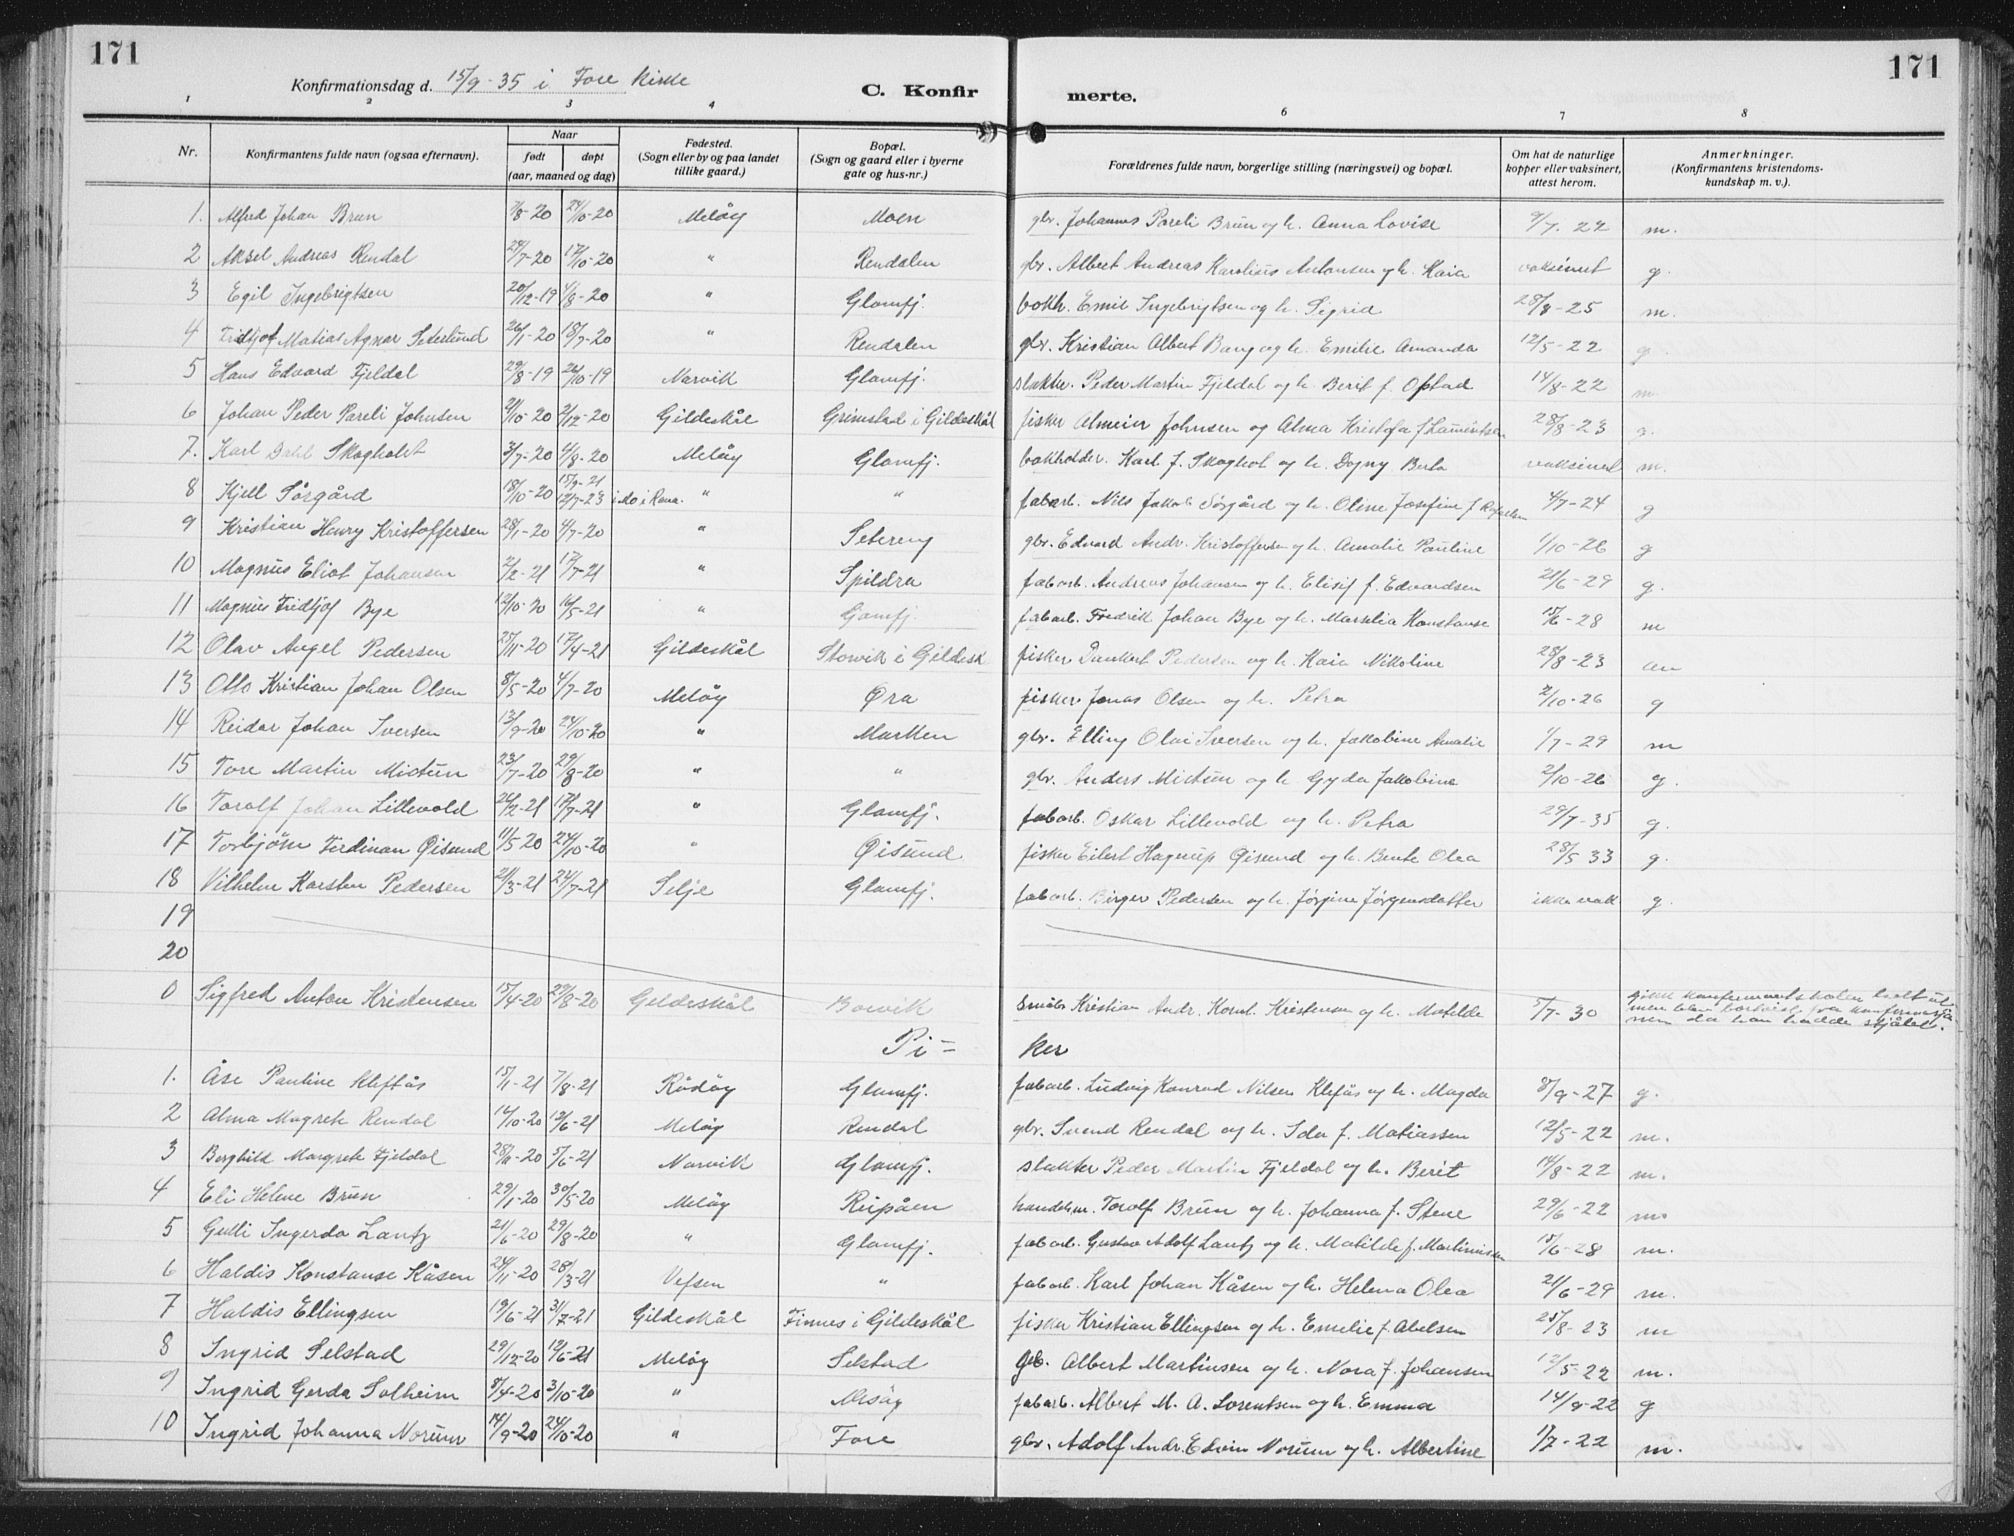 171
171
Konfirmationsdag d. 15/9-35 i Fore kirke
C. Konfir merte.
1 2 3 4 6 7 8
Nr.
Konfirmantens fulde navn (ogsaa efternavn).
Naar
født døpt
(aar, maaned og dag)
Fødested.
(Sogn eller by og paa landet
tillike gaard.)
Bopæl.
(Sogn og gaard eller i byerne
gate og hus-nr.)
Forældrenes fulde navn, borgerlige stilling (næringsvei) og bopæl.
Om hat de naturlige
kopper eller vaksinert,
attest herom.
Anmerkninger.
(Konfirmantens kristendoms-
kundskap m. v.).
1. Alfred Johan Brun 7/8-20 24/10-20 Meløy Moen gbr. Johannes Pareli Brun og h. Anna Lovise 9/7-22 m.
2 Aksel Andreas Rendal 29/7-20 17/10-20 " Rendalen gbr. Albert Andreas Karolius Antonsen og h. Kaia vaksinert g.
3 Egil Ingebrigtsen 20/12-19 4/8-20 " Glomfj. bokh. Emil Ingebrigtsen og h. Sigrid 28/8-25 m.
4 Fridtjof Matias Agnar Seterlund 26/1-20 18/7-20 " Rendalen gbr. Kristian Albert Bang og h. Emilie Amanda 12/5-22 g.
5 Hans Edvard Fjeldal 29/8-19 26/10-19 Narvik Glomfj. slakter. Peder Martin Fjeldal og h. Berit f. Opstad 14/8-22 m.
6 Johan Peder Pareli Johnsen 21/10-20 2/12-20 Gildeskål Grimstad i Gildeskål fisker Almeier Johnsen og Alma Kristofa f. Lauritsen 28/8-23 g.
7. Karl Dahl Skogholt 3/7-20 4/8-20 Meløy Glomfj. bokholder. Karl J. Skogholt og h. Dagny Berta vaksinert m.
8 Kjell Sørgård 18/10-20 15/9-21 12/7-23 i Mo i Rana. " " fabarb. Nils Jakob Sørgård og h. Oline Josefine f. Rafaelsen 4/7-24 g
9 Kristian Henry Kristoffersen 28/1-20 4/7-20 " Setereng gbr. Edvard Andr. Kristoffersen og h. Amalie Pauline 1/10-26 g
10 Magnus Eliot Johansen 2/2-21 17/7-21 " Spildra fabarb. Andreas Johansen og h. Elisif f. Edvardsen 21/6-29 g.
11 Magnus Fridtjof Bye 12/10-20 16/5-21 " Glomfj. fabarb. Fredrik Johan Bye og h. Marselia Konstanse 15/6-28 m
12 Olav Angel Pedersen 25/11-20 17/4-21 Gildeskål Storvik i Gildesk fisker Dankert Pedersen og h. Kaia Nikoline 28/8-23 m
13 Otto Kristian Johan Olsen 8/5-20 4/7-20 Meløy Øra fisker Jonas Olsen og h. Petra 2/10-26 g
14 Reidar Johan Iversen 13/9-20 24/10-20 " Marken gbr. Elling Olai Iversen og h. Jakobine Amalie 1/7-29 m
15 Tore Martin Mietun 23/7-20 29/8-20 " " gbr. Anders Mietun og h. Gyda Jakobine 2/10-26 g.
16 Toralf Johan Lillevold 26/2-21 17/7-21 " Glomfj. fabarb. Oskar Lillevold og h. Petra 29/7-35 g.
17 Torbjørn Ferdinan Øisund 11/5-20 24/10-20 " Øisund fisker Eilert Hagerup Øisund og h. Bente Olea 28/5 33 g.
18 Vilhelm Karsten Pedersen 21/3-21 24/7-21 Selje Glomfj. fabarb. Birger Pedersen og h. Jørgine Jørgensdatter ikke vaks g.
19
20
0 Sigfred Anton Kristensen 15/4-20 29/8-20 Gildeskål Borvik småbr Kristian Andr. Kornl. Kristensen og h. Matilde 5/7-30 gikk konfirmantskolen helt ut men blev bortvist fra konfirmasjonen da han hadde stjålet.
Pi = ker
1. Åse Pauline Kleftås 15/1-21 7/8-21 Rødøy Glomfj. fabarb. Ludvig Konrad Nilsen Klefås og h. Magda 8/9-27 g.
2 Alma Magrete Rendal 14/10-20 12/6-21 Meløy Rendal gbr. Svend Rendal og h. Ida f. Matiassen 12/5-22 m.
3 Borghild Margrete Fjeldal 28/11-20 5/6-21 Narvik Glomfj. slakter Peder Martin Fjeldal og h. Berit 14/8-22 m.
4 Eli Helene Brun 29/1-20 30/5-20 Meløy Reipåen handelsm. Torolf Brun og h. Johanna f. Stene 29/6-22 m.
5 Gulli Ingerda Lantz 21/6-20 29/8-20 " Glomfj. fabarb. Gustav Adolf Lantz og h. Matilde f. Martinussen 15/6-28 m.
6 Haldis Konstanse Kåsen 24/11-20 28/3-21 Vefsen " fabarb. Karl Johan Kåsen og h. Helena Olea 21/6-29 m.
7 Haldis Ellingsen 19/6-21 31/7-21 Gildeskål Finnes i Gildeskål fisker Kristian Ellingsen og h. Emelie f. Abelsen 25/8-23 m
8 Ingrid Selstad 29/12-20 12/6-21 Meløy Selstad gb. Albert Martinsen og h. Nora f. Johansen 12/5-22 m.
9 Ingrid Gerda Solheim 5/4-20 3/10-20 " Mesøy fabarb. Albert M. A. Lorentsen og h. Emma 14/8-22 g
10 Ingrid Johanna Norum 14/9-20 24/10-20 " Fore gbr. Adolf Andr. Edvin Norum og h. Albertine 1/7-22 m.